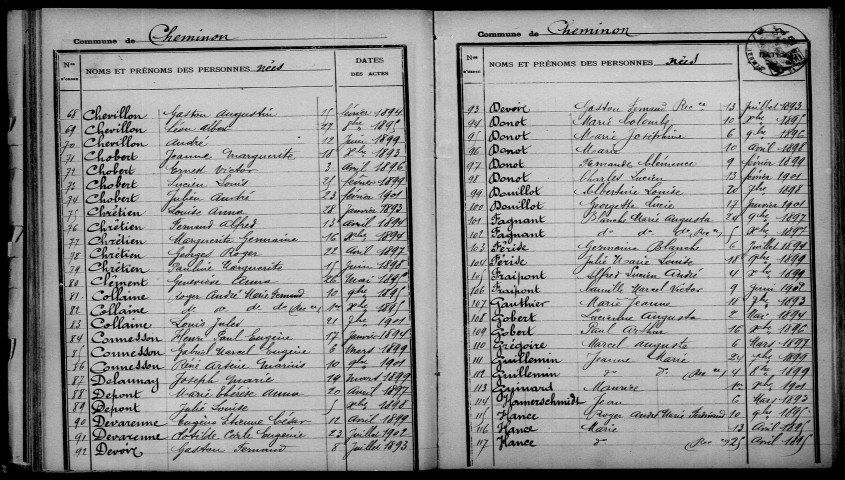 Commune de Cheminon
Nos D'ORDRE NOMS ET PRÉNOMS DES PERSONNES nées DATES DES ACTES
68 Chevillon Gaston Augustin 15 février 1894
69 Chevillon Léon Albert 27 8bre 1895
70 Chevillon André 12 Juin 1899
71 Chobert Jeanne Marguerite 18 Xbre 1893
72 Chobert Ernest Victor 3 Avril 1896
73 Chobert Lucien Louis 21 février 1899
74 Chobert Julien André 23 février 1901
75 Chrétien Louise Anna 28 Janvier 1893
76 Chrétien Fernand Alfred 13 Avril 1894
77 Chrétien Marguerite Germaine 16 Xbre 1894
78 Chrétien Georges Roger 22 Avril 1897
79 Chrétien Pauline Marguerite 15 Juin 1898
80 Clément Geneviève Anna 26 Mai
81 Collaine Roger André Marie Fernand 10 9bre
82 Collaine d° d° d° d° (Rec ce) Xbre
83 Collaine Louis Jules 21 7bre 1901
84 Connesson Henri Paul Eugène 17 Janvier
85 Connesson Gabriel Marcel Eugène 6 Mars 1899
86 Connesson René Arsène Marius 10 9bre 1901
87 Delaunay Joseph Marie 29 Mars 1899
88 Depont Marie Thérèse Anna 20 Avril 1897
89 Depont Julie Louise 5 Xbre 1898
90 Devarenne Eugène Etienne César 12 Avril 1899
91 Devarenne Clotilde Carle Eugénie 23 Juillet 1902
92 Devoir Gaston Fernand 8 Juillet 1893
Commune de Cheminon
Nos D'ORDRE NOMS ET PRÉNOMS DES PERSONNES nées DATES
93 Devoir Gaston Fernand Rec ce 13 Juillet 1893
94 Donot Marie Colombe 10 Xbre 1895
95 Donot Marie Joséphine 6 9bre 1896
96 Donot Marie 10 Avril 1898
97 Donot Fernande Clémence 9 février 1899
98 Donot Charles Lucien 13 février 1901
99 Douillot Albertine Louise 20 7bre 1898
100 Douillot Georgette Lucie 17 Janvier 1901
101 Fagnant Blanche Marie Augusta 24 9bre 1897
102 Fagnant d° d° d° (Rec ce) 5 Xbre 1897
103 Féride Germaine Blanche 6 Juillet 1894
104 Féride Julie Marie Louise 18 9bre 1899
105 Fraipont Alfred Lucien André 4 Xbre 1899
106 Fraipont Camille Marcel Victor 9 Juin 1902
107 Gauthier Marie Jeanne 18 7bre 1893
108 Gobert Lucienne Augusta 2 Mai 1894
109 Gobert Paul Arthur 16 Xbre 1896
110 Grégoire Marcel Auguste 6 Mars 1897
111 Guillemin Jeanne Marie 24 7bre 1899
112 Guillemin d° d° (Rec ce) 4 8bre 1899
113 Guinard Maurice Xbre 1901
114 Homerschmidt Jean 6 Mai 1893
115 Hance Roger André Marie Ferdinand 10 9bre 1895
116 Hance Marie 13 Avril 1895
117 Hance d° (Rec ce) 25 Avril 1895